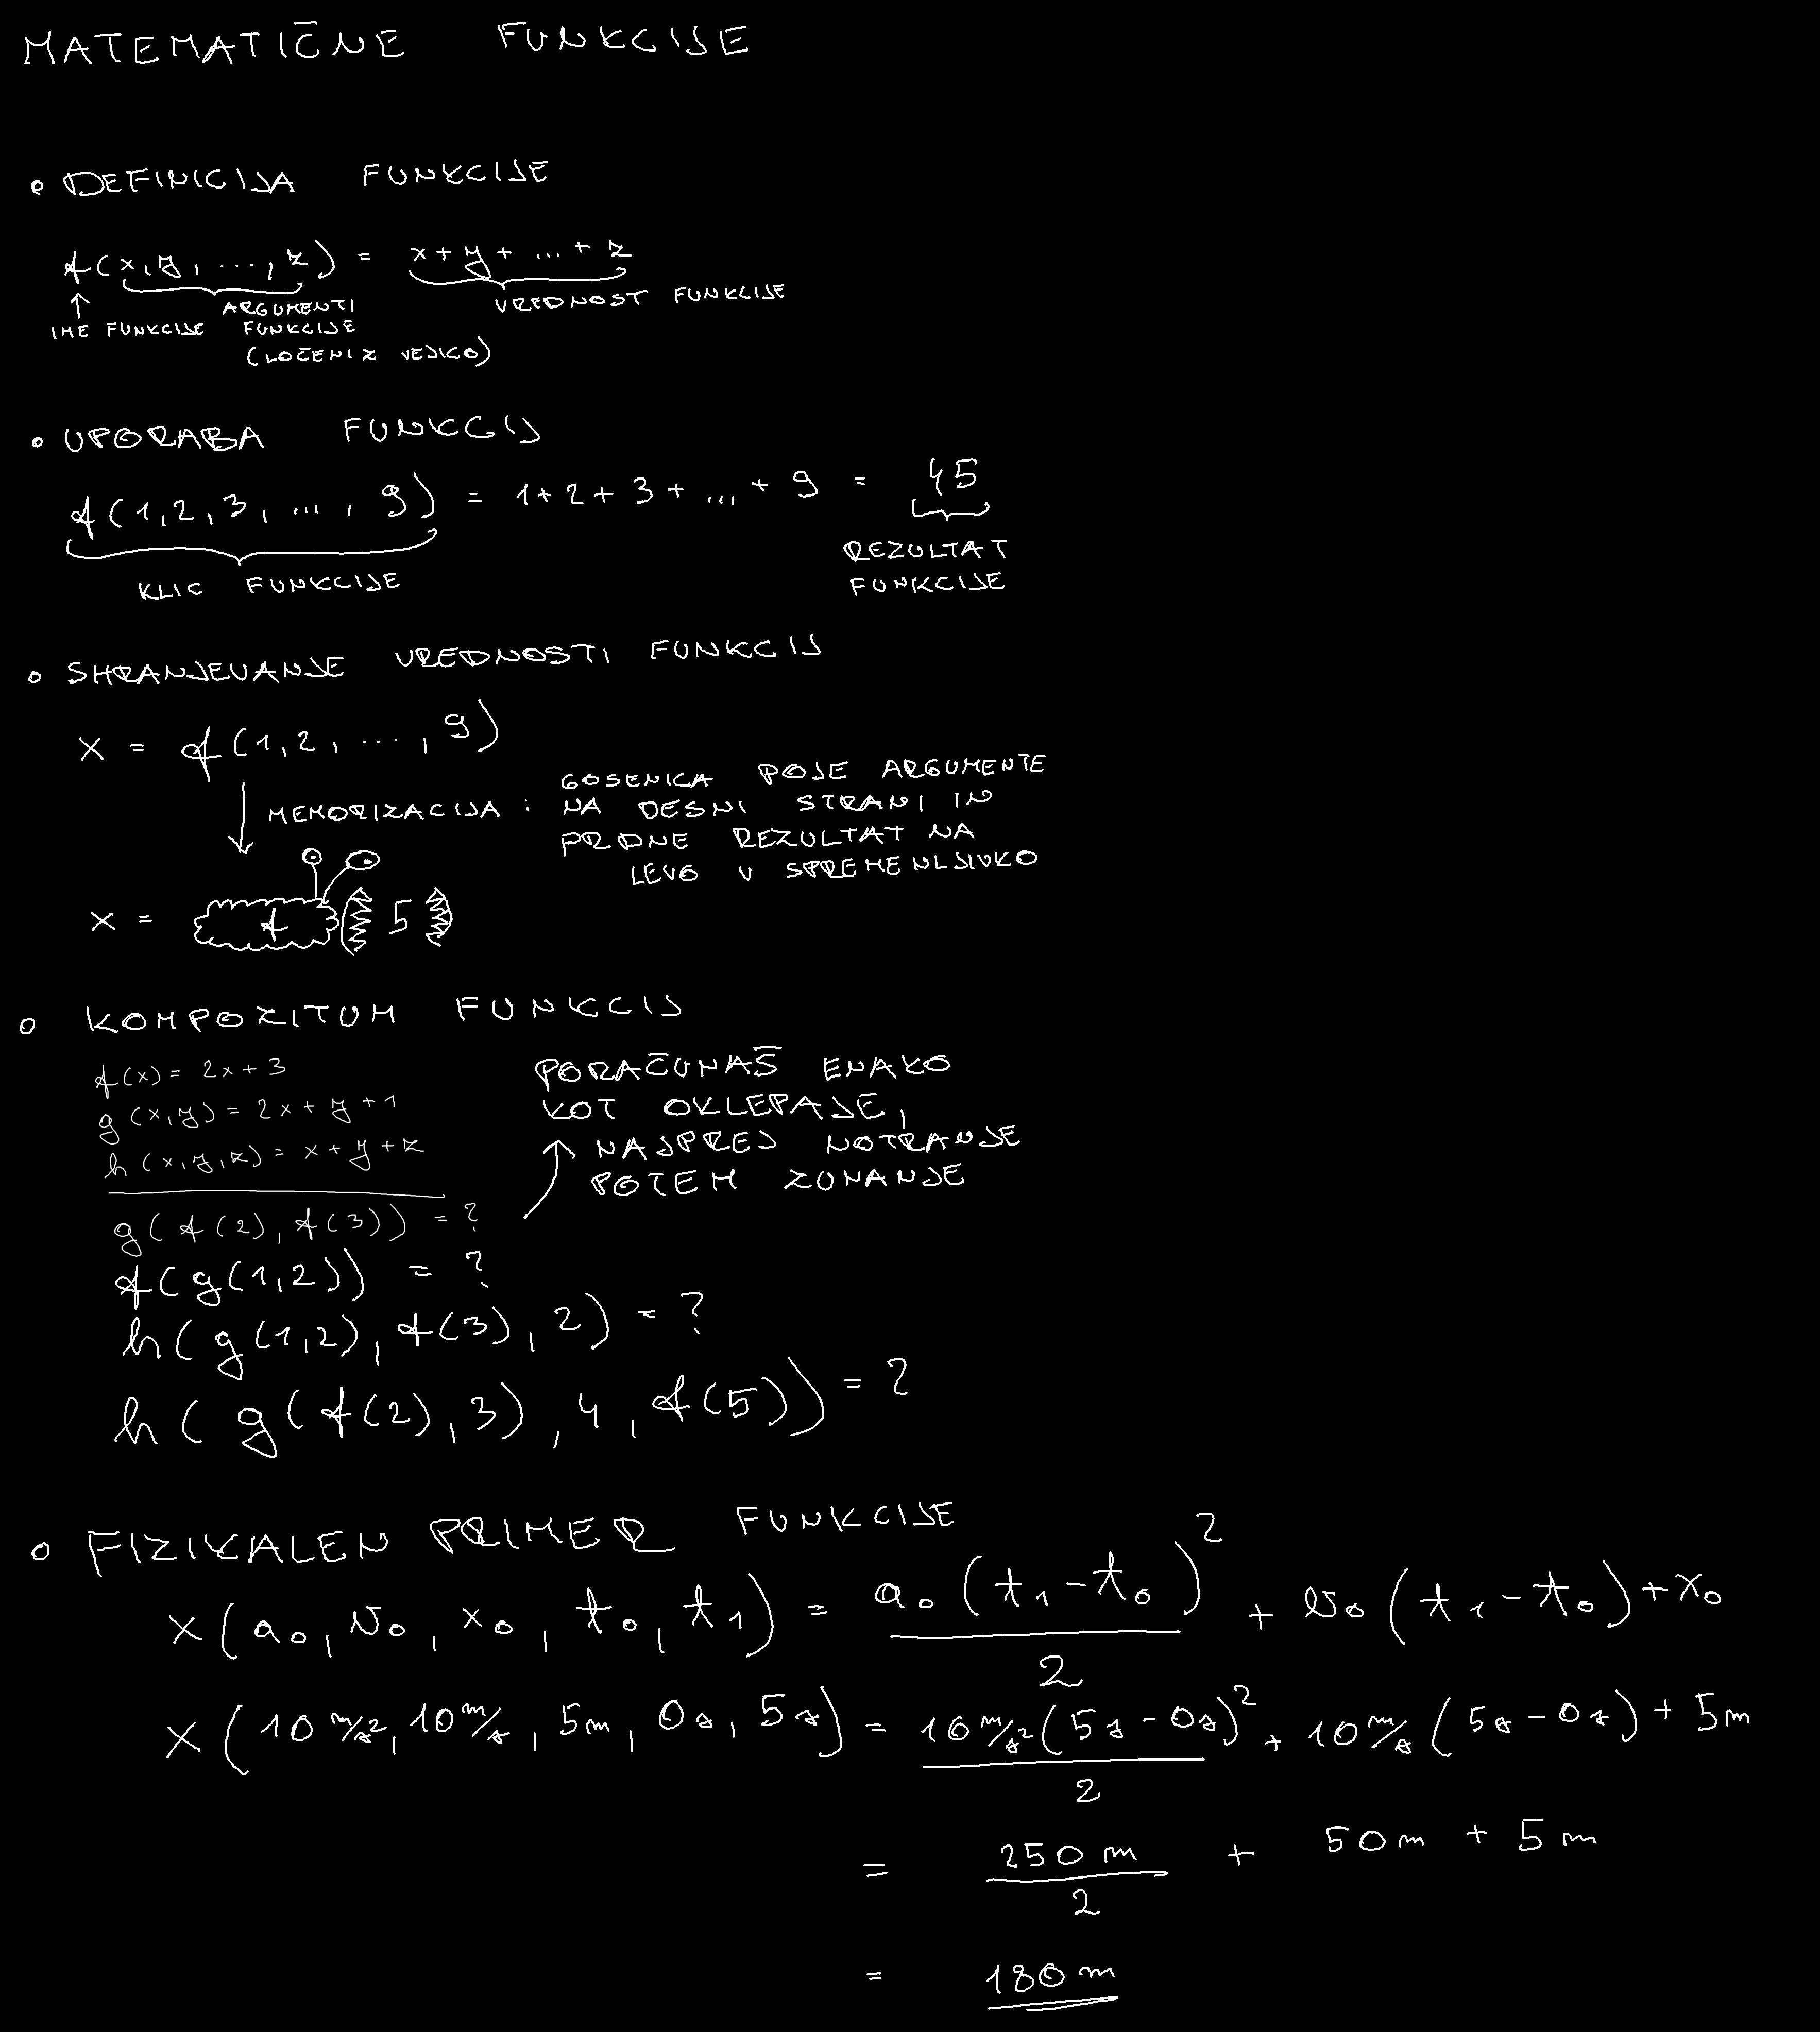 MATEMATIČNE FUNKCIJE
• DEFINICIJA FUNKCIJE
f(x,y, ..., z) = x+y+ ... + z
↑ ARGUMENTI VREDNOST FUNKCIJE
IME FUNKCIJE FUNKCIJE
(LOČENI Z VEJICO)
• UPORABA FUNKCIJ
f(1,2,3, ..., 9) = 1+2+3+ ... + 9 = 45
KLIC FUNKCIJE
REZULTAT
FUNKCIJE
• SHRANJEVANJE VREDNOSTI FUNKCIJ
x = f(1,2, ..., 9)
↓ MEMORIZACIJA : GOSENICA POJE ARGUMENTE
NA DESNI STRANI IN
PRDNE REZULTAT NA
LEVO V SPREMENLJIVKO
x = f(5)
• KOMPOZITUM FUNKCIJ
f(x) = 2x+3
g(x,y) = 2x+y+1
h(x,y,z) = x+y+z
g(f(2), f(3)) = ?
PORAČUNAŠ ENAKO
KOT OKLEPAJE,
NAJPREJ NOTRANJE
POTEM ZUNANJE
f(g(1,2)) = ?
h(g(1,2), f(3), 2) = ?
h(g(f(2),3), 4, f(5)) = ?
• FIZIKALEN PRIMER FUNKCIJE
x(a₀, v₀, x₀, t₀, t₁) = a₀(t₁-t₀)²/2 + v₀(t₁-t₀)+x₀
x(10 m/s², 10 m/s, 5m, 0s, 5s) = 10 m/s²(5s-0s)²/2 + 10 m/s (5s-0s) + 5m
= 250 m/2 + 50m + 5m
= 180 m